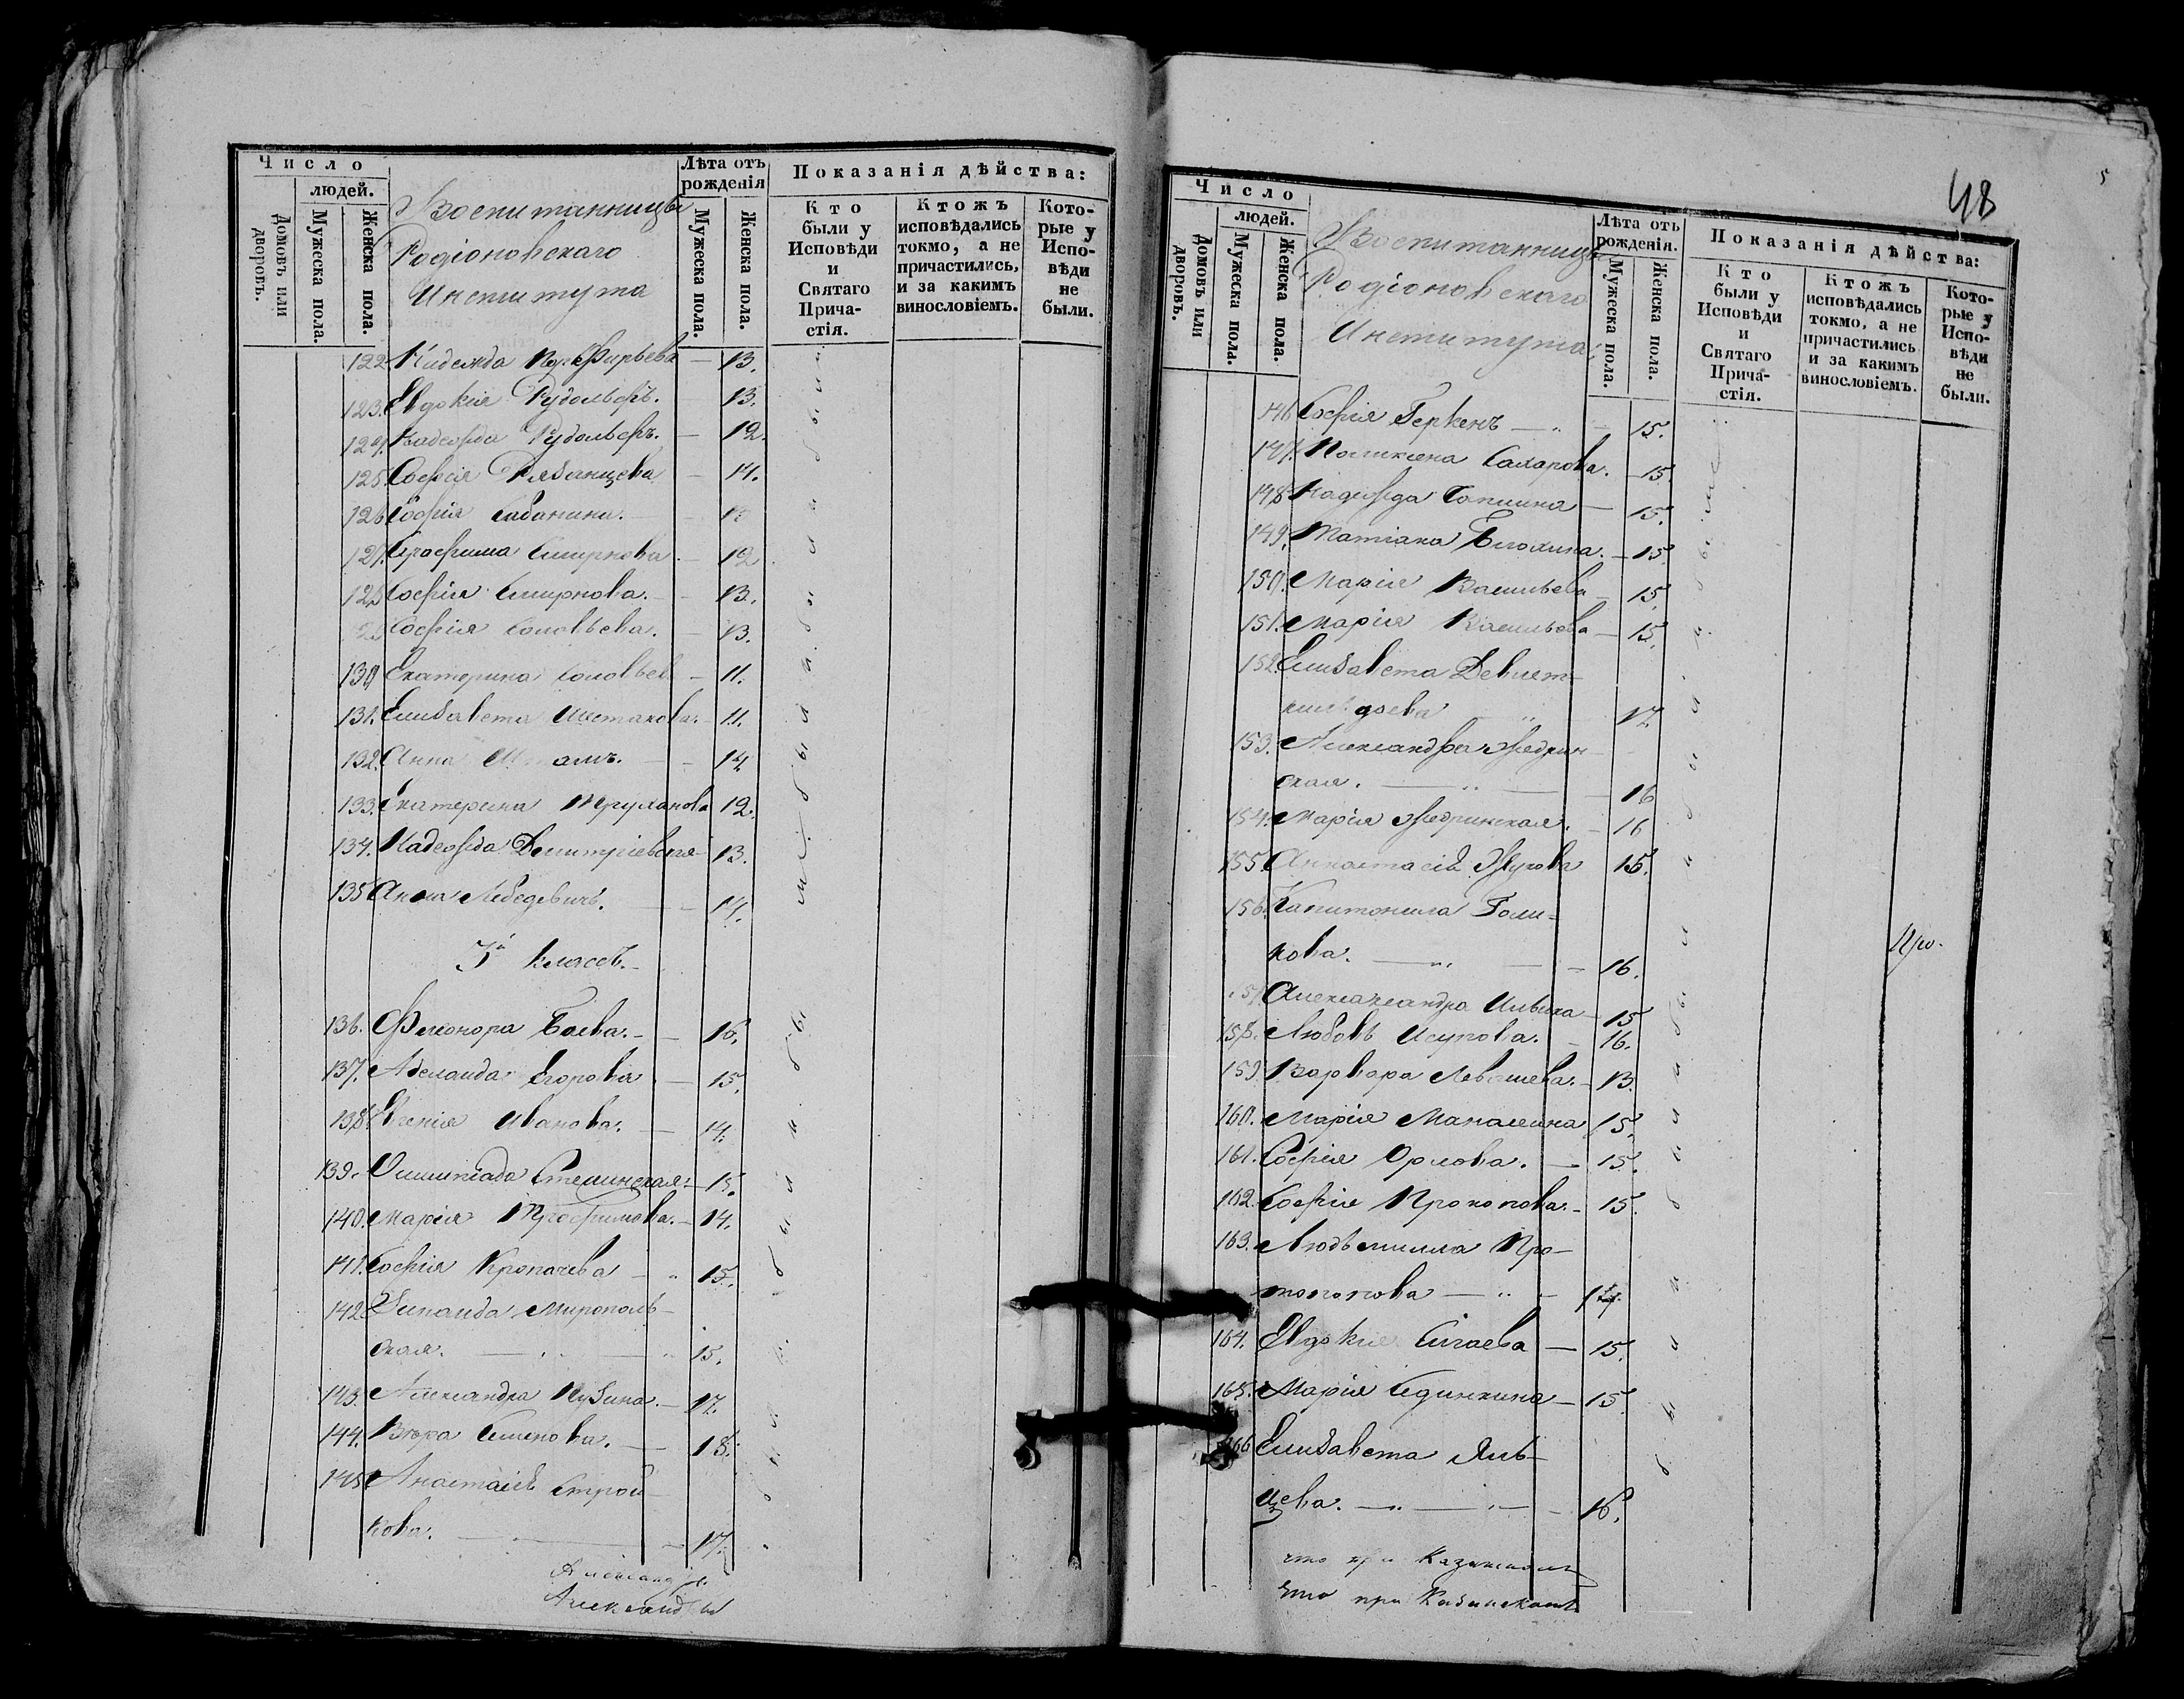 Число
людей.
Домовъ или дворовъ.
Мужеска пола.
Женска пола.
Воспитанницы
Родіоновскаго
Института
Лѣта отъ рожденія
Мужеска пола.
Женска пола.
Показанія дѣйства:
Кто были у Исповѣди и Святаго Прича-стія.
Ктожъ исповѣдались токмо, а не причастились, и за какимъ винословіемъ.
Кото-рые у Испо-вѣди не были.
122. Надежда Порфирьева — 13.
123. Евдокія Рудольфъ. — 13.
124. Надежда Рудольфъ. — 12.
125. Софія Рязанцева — 14.
126 Софія Сабанина. —
127. Серафима Смирнова — 12
128 Софія Смирнова. — 13.
Софія Соловьева. — 13.
130 Екатерина Соловьев — 11.
131. Елизавета Шестакова. — 11.
132. Анна — 14
133. Екатерина Труханова 12.
134. Надежда Дмитріевская — 13.
135 Анна Лебедевичъ. — 14.
3й классъ.
136. Элеонора Боева. — 16.
137. Аделаида Егорова — 15.
138. Евгенія Иванова. — 14.
139. Олимпіада Стелинская — 15.
140. Марія Трофимова. — 14.
141. Софія Кропачева — " 15.
142. Зинаида Мирополь-
ская. — 15.
143. Александра Пузина. — 17.
144. Вѣра Семенова. — 18.
145. Анастасія Строй-
кова. — 17.
Александр
Александры
48
Число
людей.
Домовъ или дворовъ.
Мужеска пола.
Женска пола.
Воспитанницы
Родіоновскаго
Института
Лѣта отъ рожденія.
Мужеска пола.
Женска пола.
Показанія дѣйства:
Кто были у Исповѣди и Святаго Прича-стія.
Ктожъ исповѣдались токмо, а не причастились и за какимъ винословіемъ.
Кото-рые у Испо-вѣди не были.
146 Софія Геркенъ — 15.
147. Поликсена Сахарова. — 15.
148. Надежда Сапшна — 15.
149. Татіана Блохина. — 15.
150. Марія Васильева — 15.
151. Марія Васильева — 15.
152. Елизавета Девлет-
кильдѣева " 17.
153. Александра Жедрин-
ская. — 16
154. Марія Жедринская. — 16
155. Анастасія Жукова 15.
156. Капитолина Голи-
кова. — 16.
157. Александра Ильина — 15
158. Любовь Исупова. — 16.
159. Варвара Левашева. — 13.
160. Марія Манасеина 15.
161. Софія Орлова. — 15.
162. Софія Прокопова. — 15.
163. Людьмилла Про-
топопова — 14.
164. Евдокія Сѣчаева — 15.
165. Марія Юдинкина — 15.
166 Елизавета Яль-
цева. — 16.
что при Казанскомъ
что при Казанскомъ